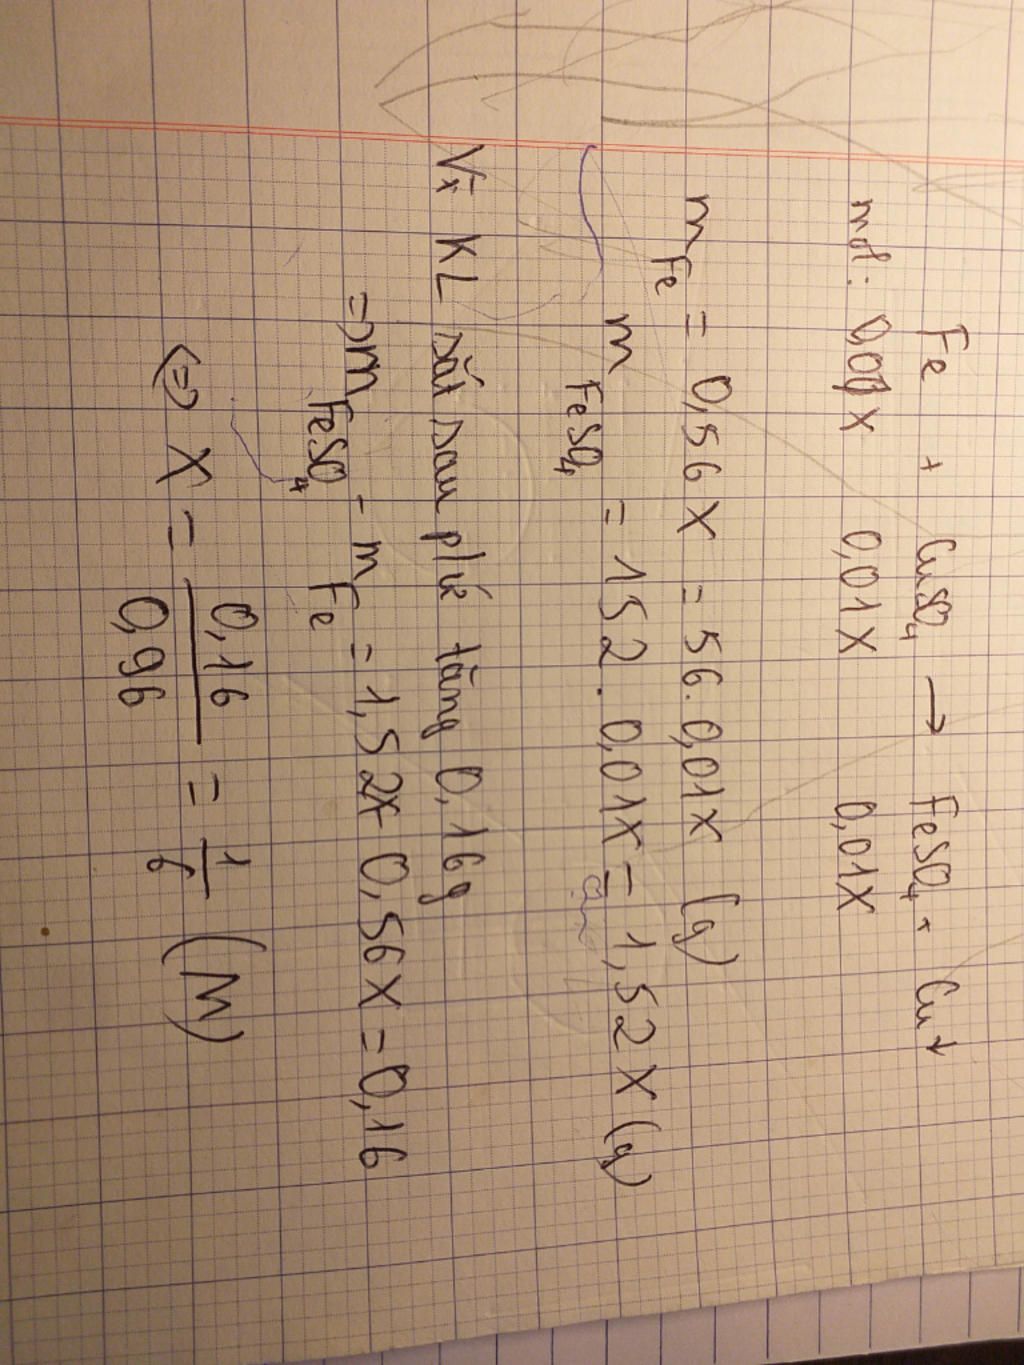 Fe + CuSO4 → FeSO4 + Cu↓
mol: 0,01x 0,01x 0,01x
mFe = 0,56x = 56.0,01x (g)
mFeSO4 = 152.0,01x = 1,52x (g)
Vì KL sắt sau p/ứ tăng 0,16g
=> mFeSO4 - mFe = 1,52x - 0,56x = 0,16
<=> x = 0,16/0,96 = 1/6 (M)